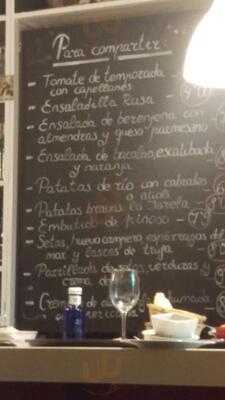 Para compartir:
- Tomate de temporada
con capellanes
- Ensaladilla Rusa -
- Ensalada de berenjena con
almendras y queso parmesano
- Ensalada de bacalao, escalibada
y naranja
- Patatas de río con cabrales
o alioli
- Patatas bravas la
- Embutido de pinoso -
- Setas, huevo campero espárragos del
mar y lascas de trufa
- Parrillada de setas, verduras y
crema de
- Crema de ahumada